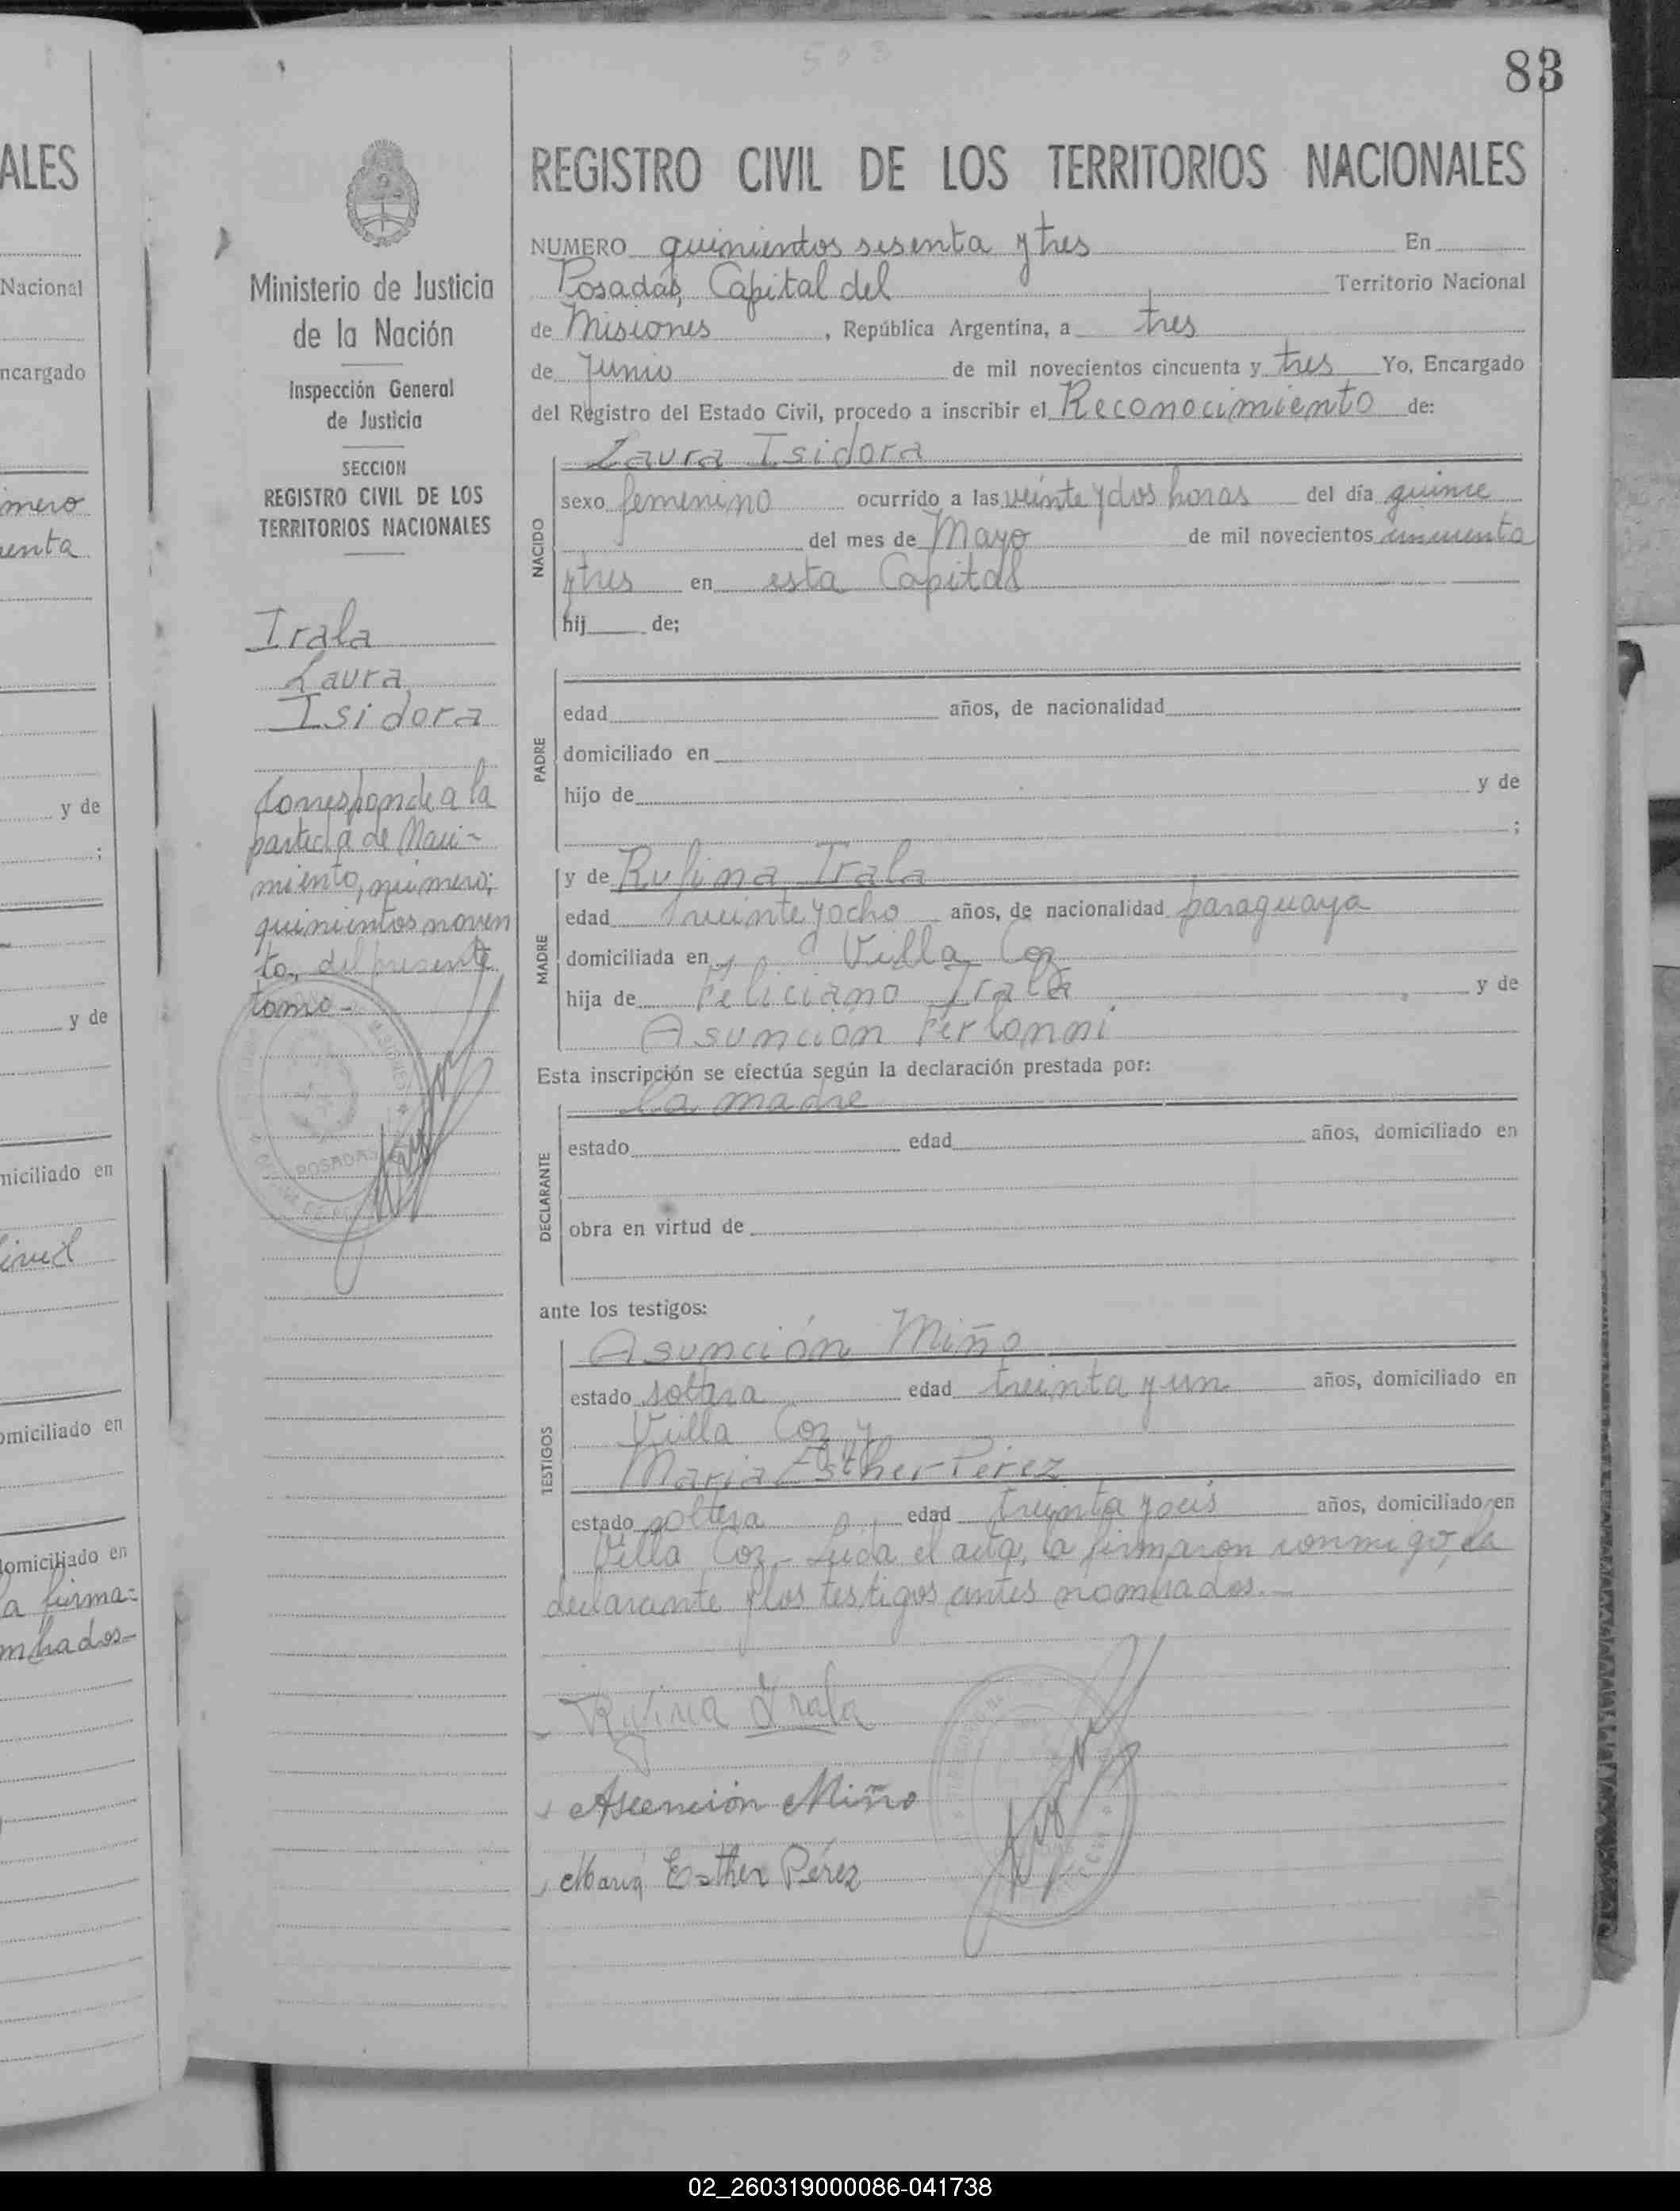 ALES
Nacional
ncargado
mero
enta
y de
;
y de
miciliado en
Civil
omiciliado en
domiciliado en
a firma=
mbrados-
503
83
Ministerio de Justicia
de la Nación
Inspección General
de Justicia
SECCION
REGISTRO CIVIL DE LOS
TERRITORIOS NACIONALES
Irala
Laura
Isidora
Corresponde a la
partida de Naci-
miento, número;
quinientos noven
ta, del presente
tomo-
POSADAS
REGISTRO CIVIL DE LOS TERRITORIOS NACIONALES
NUMERO quinientos sesenta y tres En
Posadas, Capital del Territorio Nacional
de Misiones, República Argentina, a tres
de Junio de mil novecientos cincuenta y tres Yo, Encargado
del Registro del Estado Civil, procedo a inscribir el Reconocimiento de:
NACIDO
Laura Isidora
sexo femenino ocurrido a las veinte y dos horas del día quince
del mes de Mayo de mil novecientos cincuenta
y tres en esta Capital
hij de;
PADRE
edad años, de nacionalidad
domiciliado en
hijo de y de
;
MADRE
y de Rufina Irala
edad veinte y ocho años, de nacionalidad paraguaya
domiciliada en Villa Coz
hija de Feliciano Irala y de
Asunción
Esta inscripción se efectúa según la declaración prestada por:
DECLARANTE
la madre
estado edad años, domiciliado en
obra en virtud de
ante los testigos:
TESTIGOS
Asunción Miño
estado soltera edad treinta y un años, domiciliado en
Villa Coz y
Maria Esther Pérez
estado soltera edad treinta y seis años, domiciliado en
Villa Coz - Leida el acta, la firmaron conmigo, la
declarante y los testigos antes nombrados.-
Rufina Irala
Ascención Miño
María Esther Pérez
02_260319000086-041738